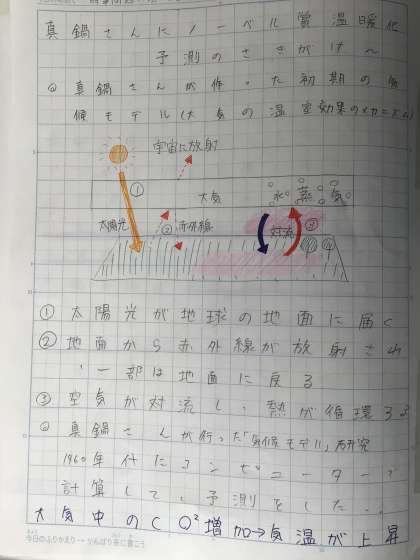 真鍋さんにノーベル賞 温暖化
予測のさきがけ〜
◎真鍋さんが作った初期の気
候モデル(大気の温室効果のメカニズム)
宇宙に放射
①
大気
水蒸気
太陽光
② 赤外線
対流
③
④
①太陽光が地球の地面に届く
②地面から赤外線が放射され
、一部は地面に戻る
③空気が対流し、熱が循環する
◎真鍋さんが行った「気候モデル」研究
1960年代にコンピューターで
計算して、予測をした。
大気中のCO²増加→気温が上昇
今日のふりかえり